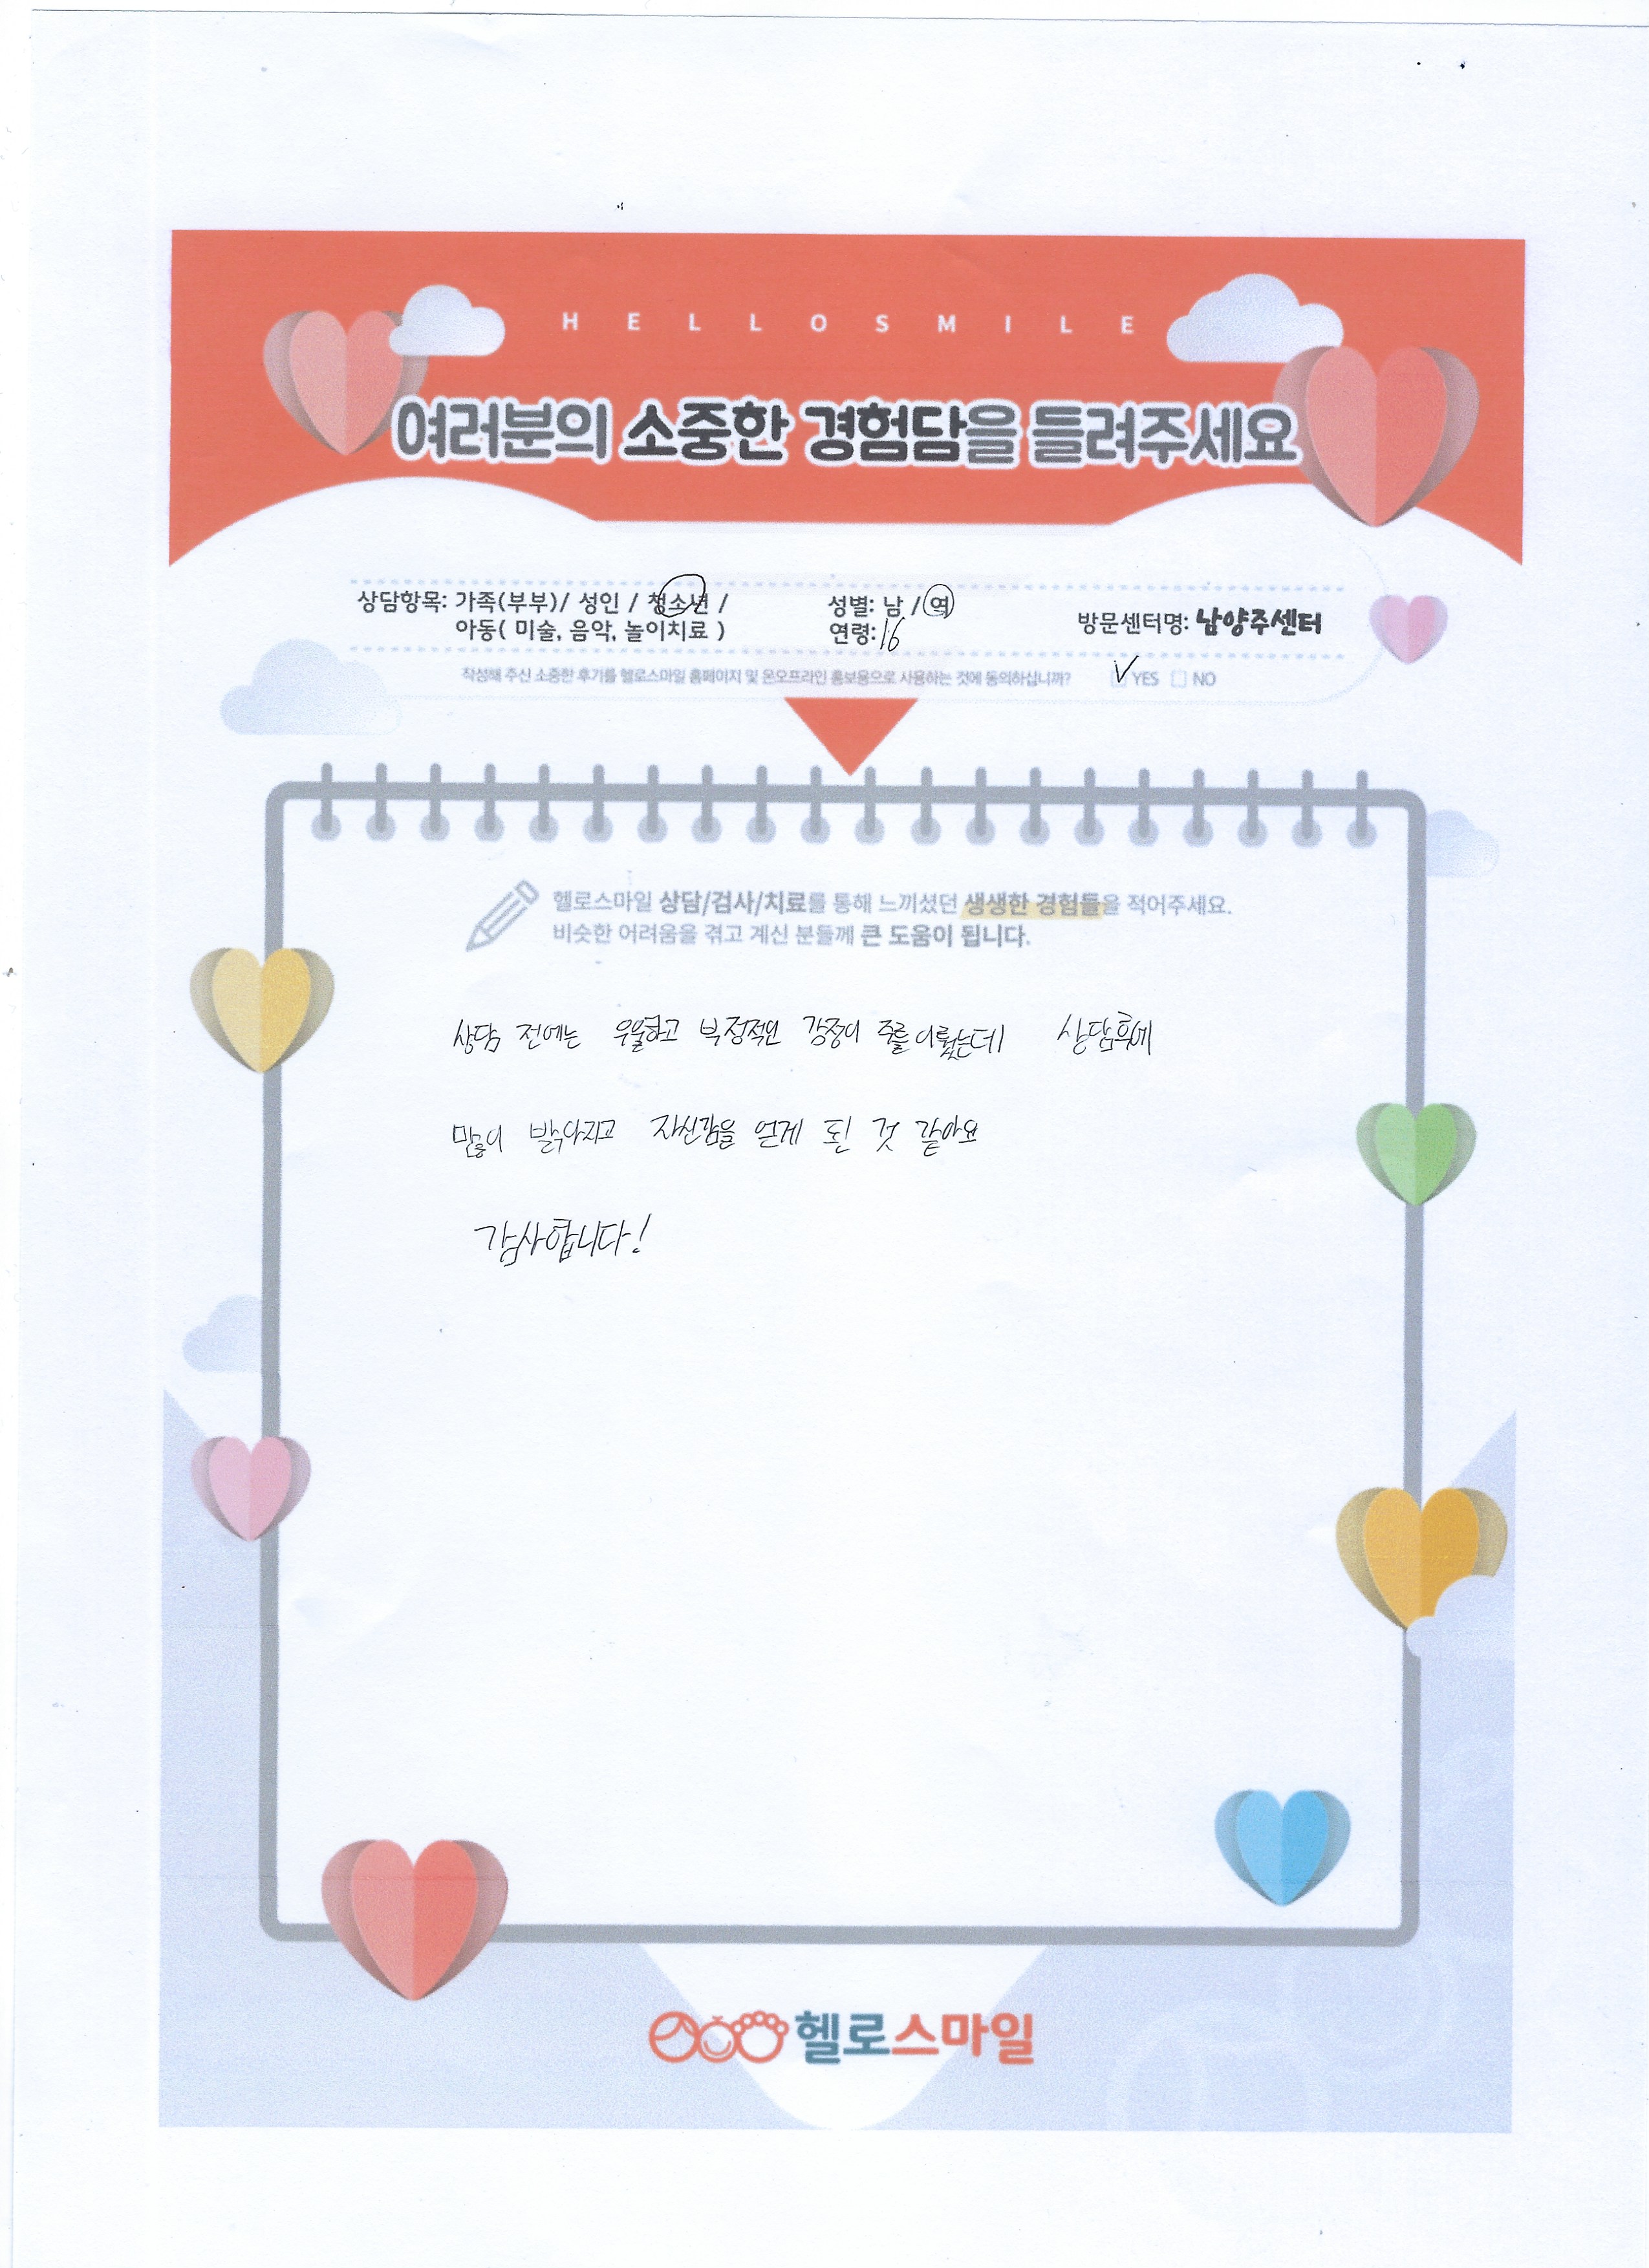 HELLOSMILE
여러분의 소중한 경험담을 들려주세요
상담항목: 가족(부부)/ 성인 / 청소년 /
아동( 미술, 음악, 놀이치료 )
성별: 남 / 여
연령: 16
방문센터명: 남양주센터
작성해 주신 소중한 후기를 헬로스마일 홈페이지 및 온오프라인 홍보용으로 사용하는 것에 동의하십니까? YES NO
헬로스마일 상담/검사/치료를 통해 느끼셨던 생생한 경험들을 적어주세요.
비슷한 어려움을 겪고 계신 분들께 큰 도움이 됩니다.
상담 전에는 우울하고 부정적인 감정이 주를 이뤘는데 상담후에
많이 밝아지고 자신감을 얻게 된 것 같아요
감사합니다!
헬로스마일